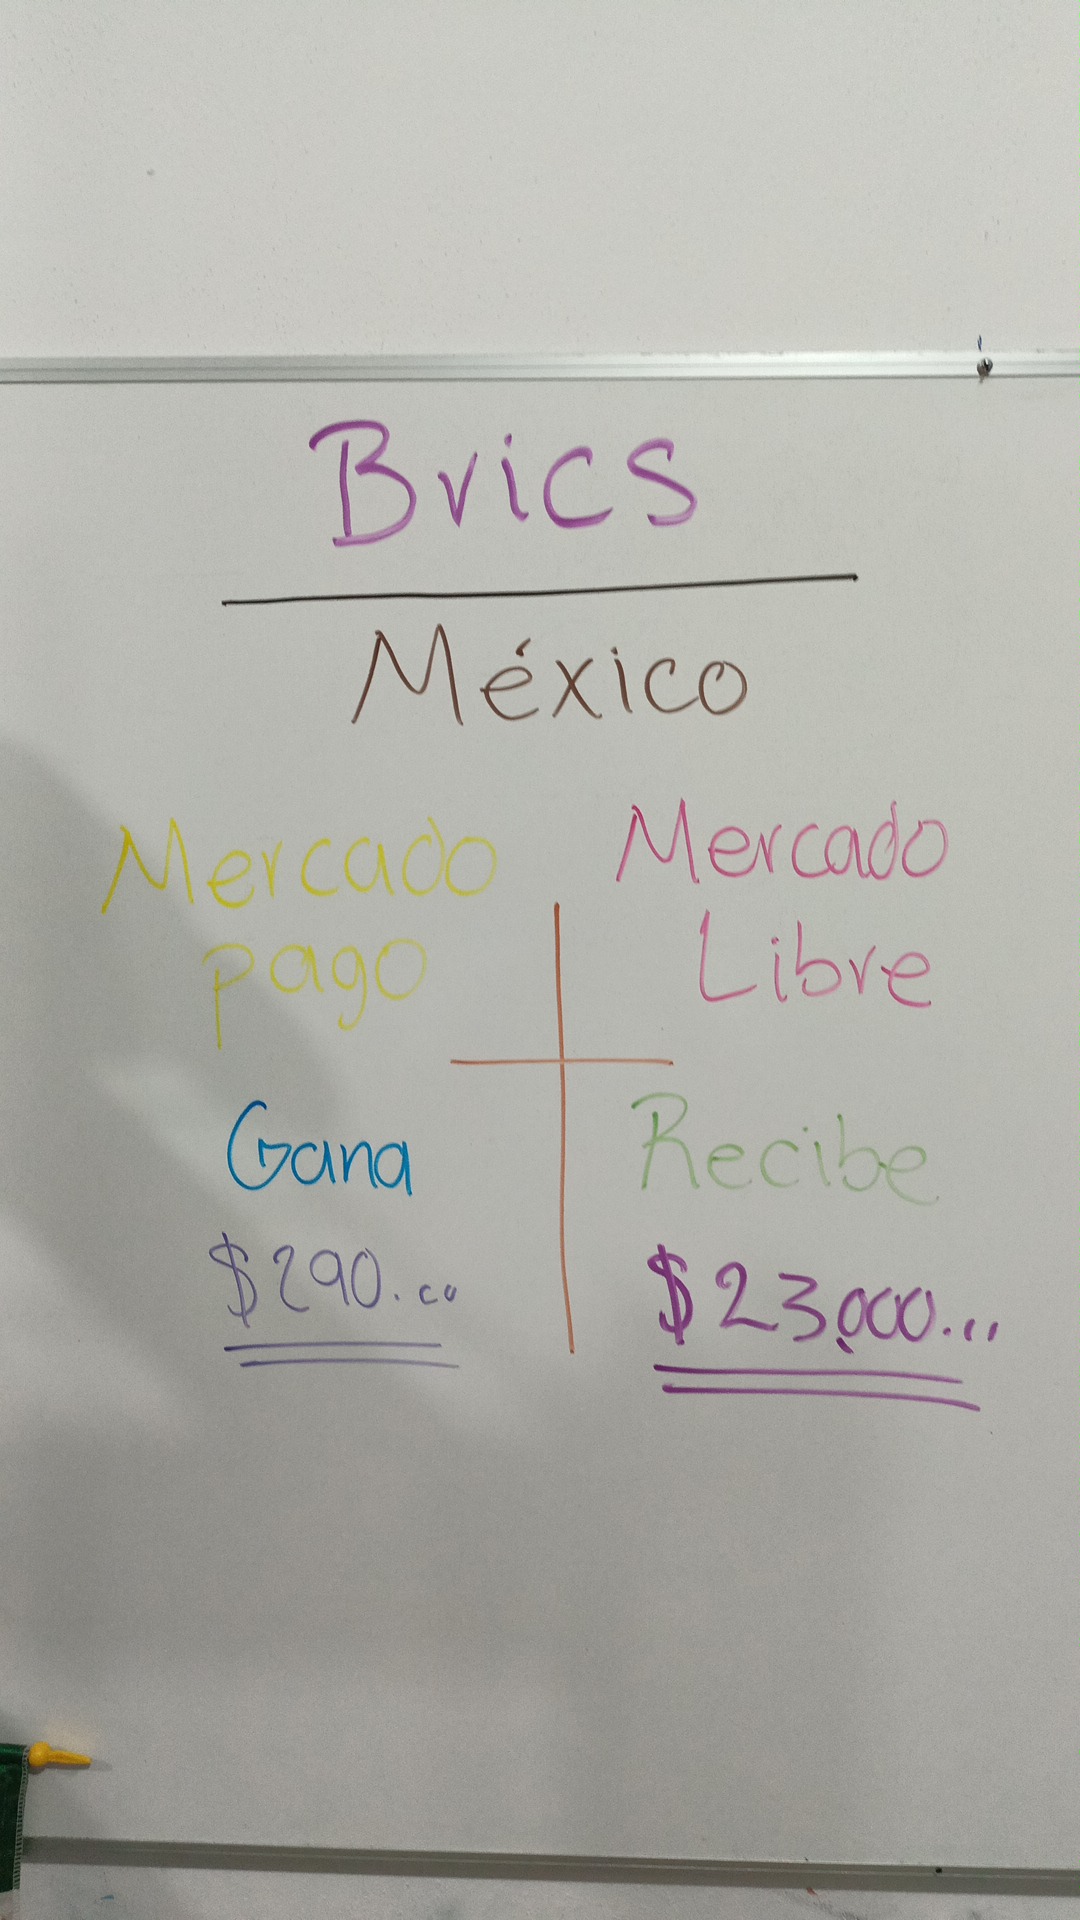 Brics
México
Mercado
pago
Mercado
Libre
Gana
$290.00
Recibe
$23,000...